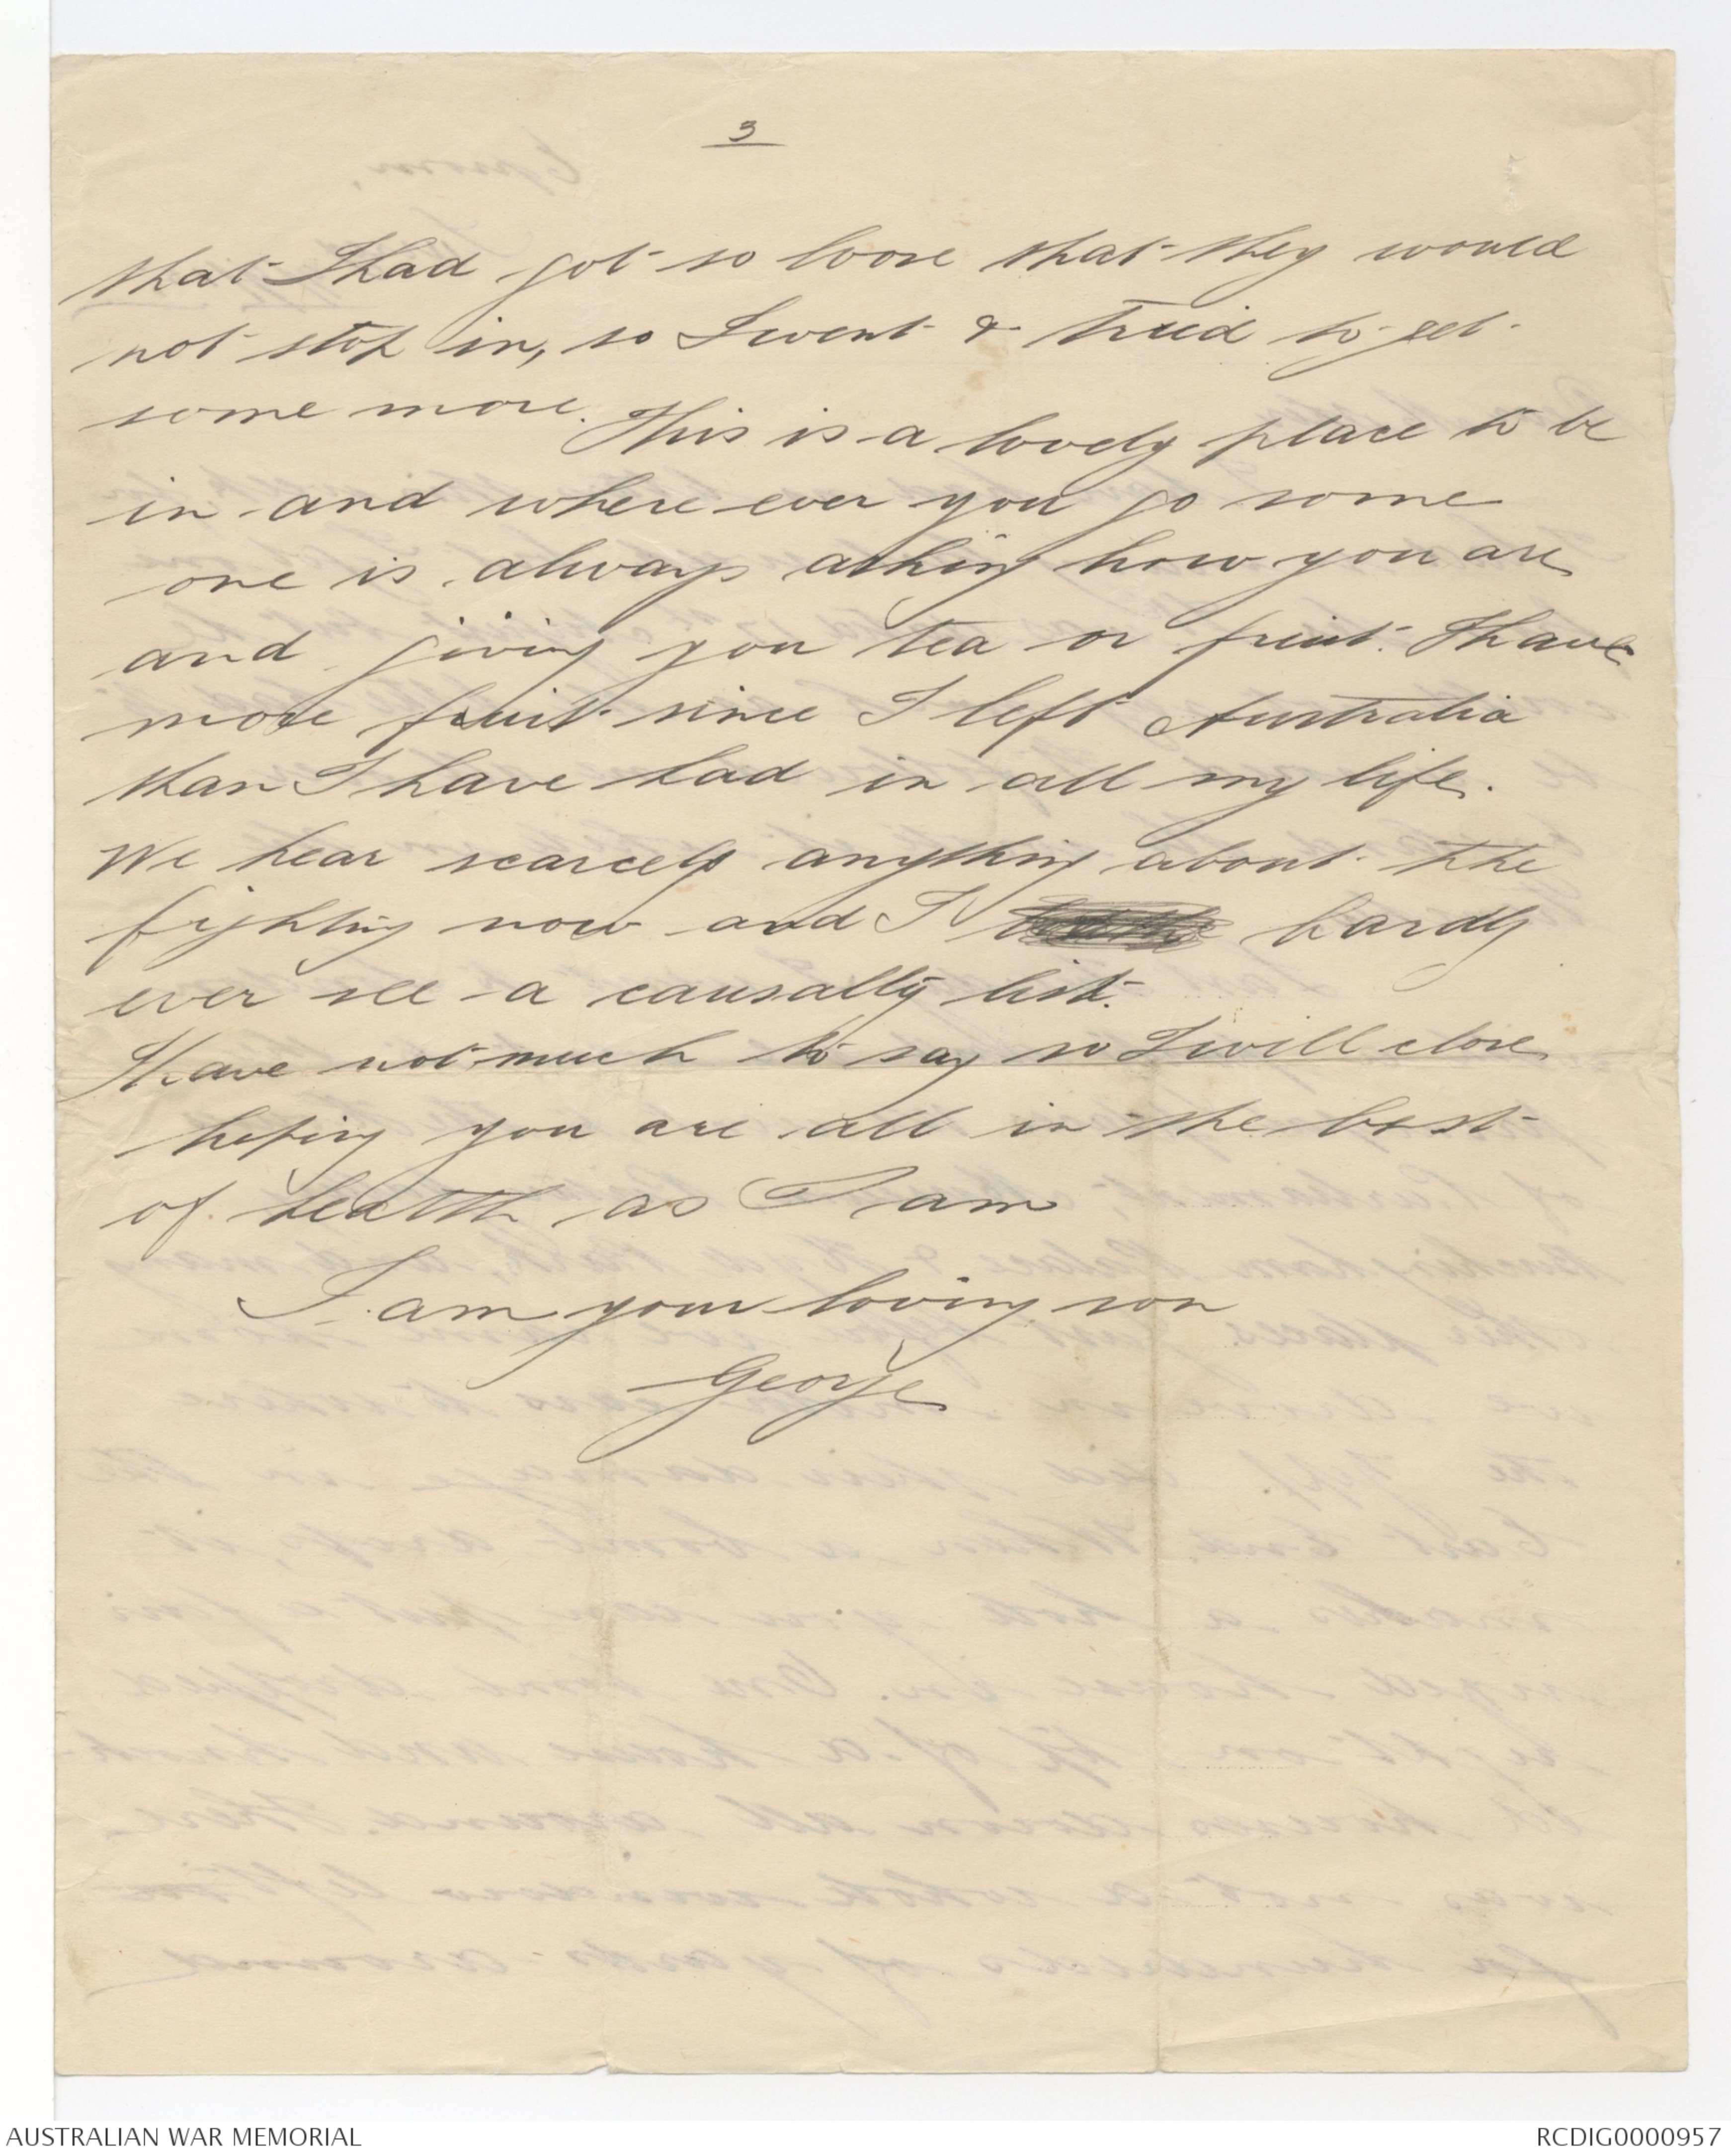 3
that I had got so loose that they would
not stop in, so I went & tried to get
some more. This is a lovely place to be
in and where ever you go some
one is always asking how you are
and giving you tea or fruit. I have
more fruit since I left Australia
than I have had in all my life.
We hear scarcely anything about the
fighting now and I hardly
ever see a causalty list.
I have not much to say so I will close
hoping you are all in the best
of health as I am
I am your loving son
George
AUSTRALIAN WAR MEMORIAL
RCDIG0000957